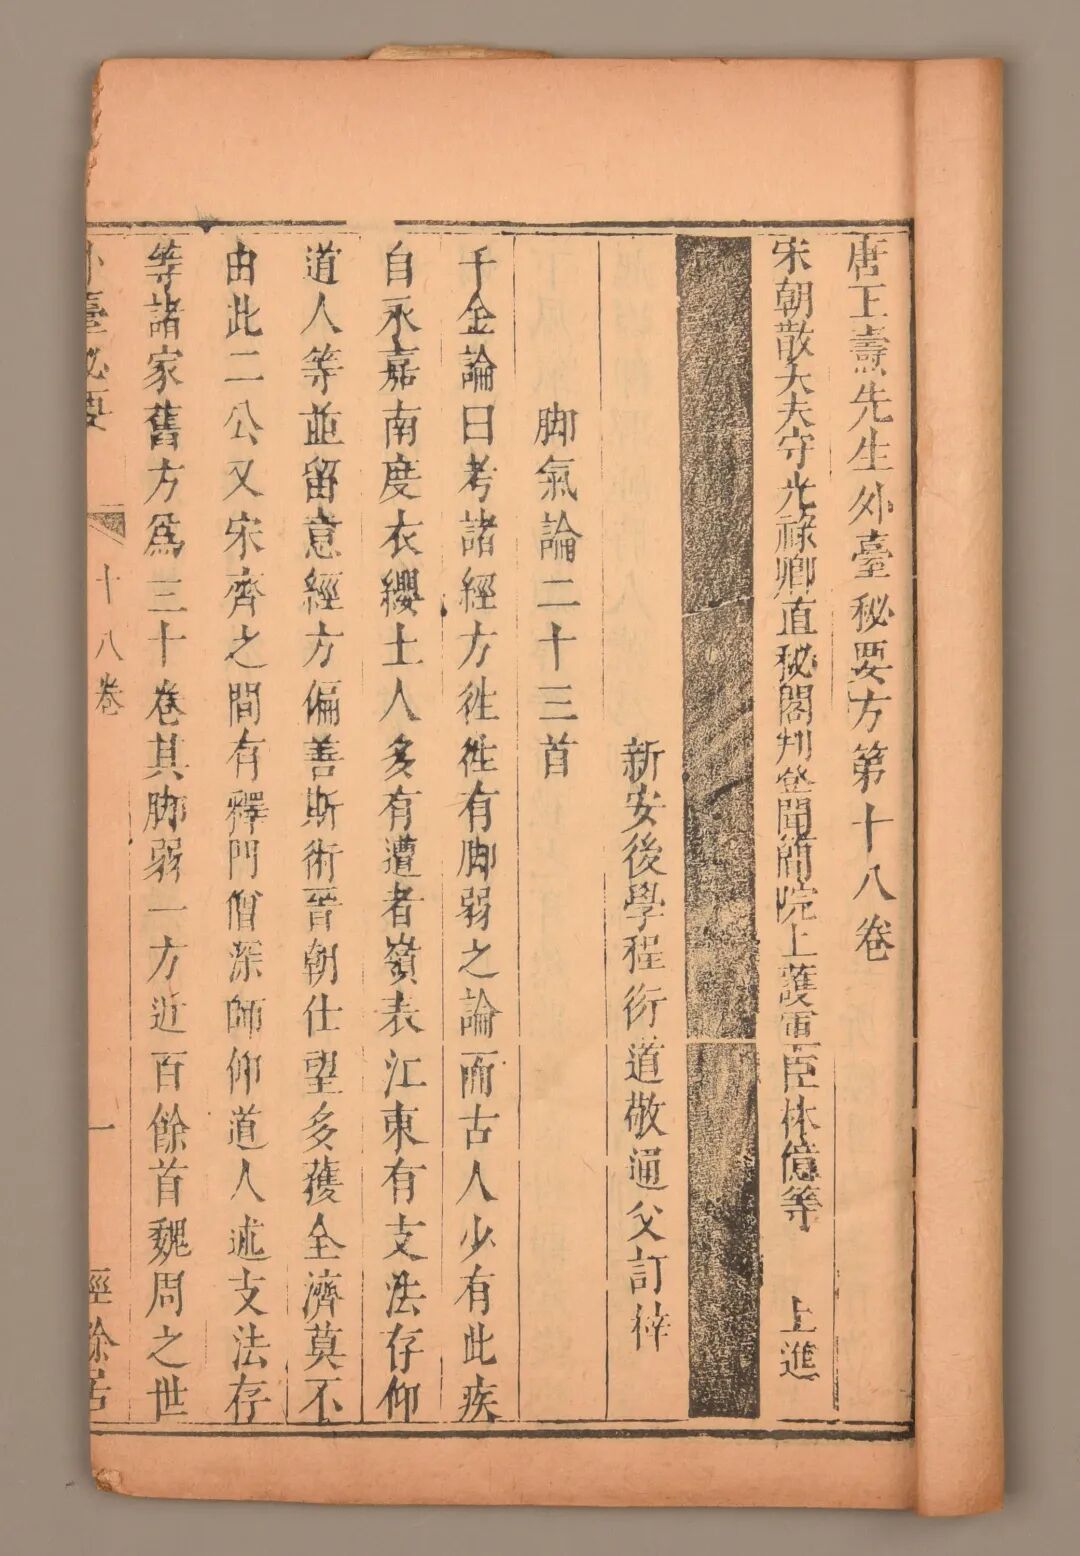 唐王燾先生外臺秘要方第十八卷
宋朝散大夫守光祿卿直秘閣判登聞簡院上護軍臣林億等 上進
新安後學程衍道敬通父訂梓
脚氣論二十三首
千金論曰考諸經方徃徃有脚弱之論而古人少有此疾
自永嘉南度衣纓士人多有遭者嶺表江東有支法存仰
道人等並留意經方偏善斯術晉朝仕望多獲全濟莫不
由此二公又宋齊之間有釋門僧深師仰道人述支法存
等諸家舊方爲三十卷其脚弱一方近百餘首魏周之世
外臺秘要 十八卷 一 經餘居